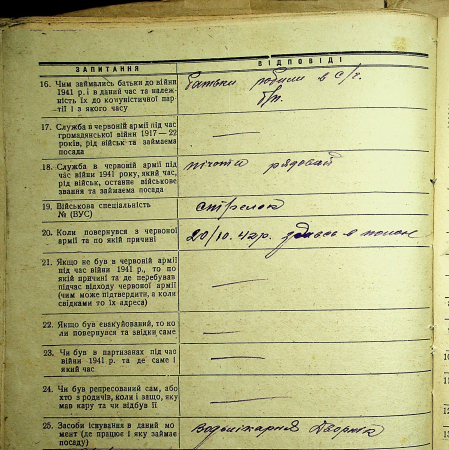 ЗАПИТАННЯ
ВІДПОВІДІ
16. Чим займались батьки до війни
1941 р. і в даний час та належ-
ність їх до комуністичної пар-
тії і з якого часу
батьки робили в с/г.
б/п.
17. Служба в червоній армії під час
громадянської війни 1917—22
років, рід військ та займаєма
посада
—
18. Служба в червоній армії під
час війни 1941 року, який час,
рід військ, останнє військове
звання та займаєма посада
піхота рядовий
19. Військова спеціальність
№ (ВУС)
стрелок
20. Коли повернувся з червоної
армії та по якій причині
20/10.42р. здавсь в полон
21. Якщо не був в червоній армії
під час війни 1941 р., то по
якій причині та де перебував
підчас відходу червоної армії
(чим може підтвердити, а коли
свідками то їх адреса)
—
22. Якщо був евакуйований, то ко
ли повернувся та звідки саме
—
23. Чи був в партизанах під час
війни 1941 р. та де саме і
який час
—
24. Чи був репресований сам, або
хто з родичів, коли і защо, яку
мав кару та чи відбув її
—
25. Засоби існування в даний мо
мент (де працює і яку займає
посаду)